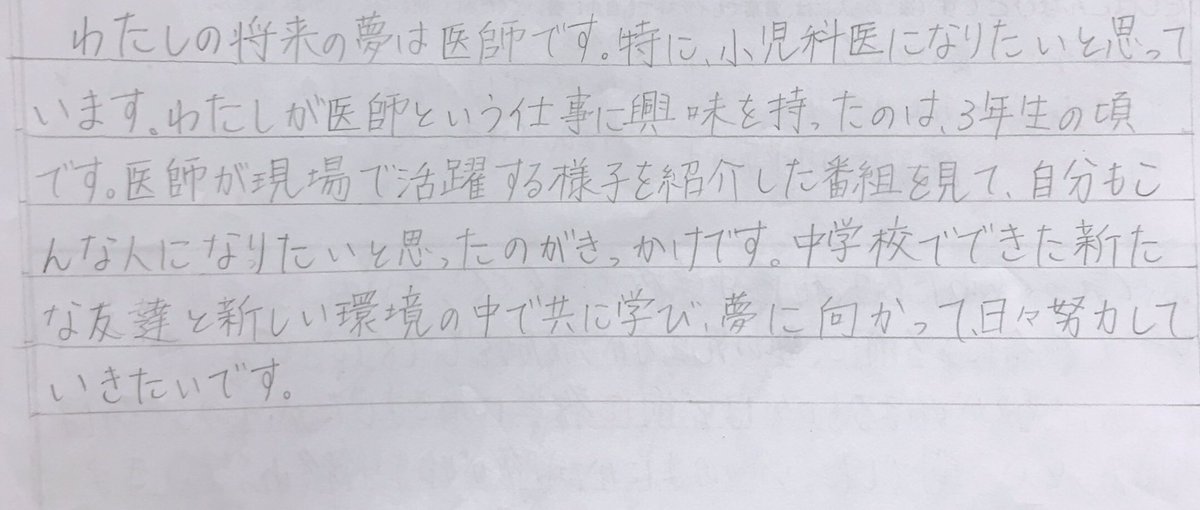 わたしの将来の夢は医師です。特に、小児科医になりたいと思って
います。わたしが医師という仕事に興味を持ったのは、3年生の頃
です。医師が現場で活躍する様子を紹介した番組を見て、自分もこ
んな人になりたいと思ったのがきっかけです。中学校でできた新た
な友達と新しい環境の中で共に学び、夢に向かって、日々努力して
いきたいです。